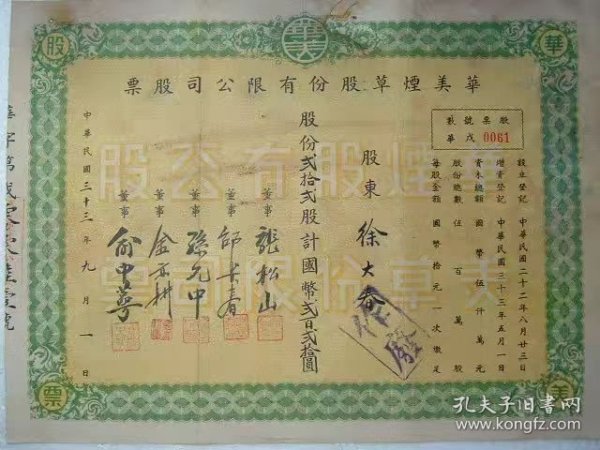 華美煙草股份有限公司股票
股票號數
華戊 0061
設立登記 中華民國二十二年八月廿三日
增資登記 中華民國三十三年五月一日
資本總額 國幣伍仟萬元
股份總數 伍百萬股
每股金額 國幣拾元一次繳足
股東 徐大
作廢
股份貳拾貳股計國幣貳百貳拾圓
董事 張松山
董事 師長春
董事 孫允中
董事 金
董事 俞中
中華民國三十三年九月一日
華
美
股
票
華美
孔夫子旧书网
www.kongfz.com